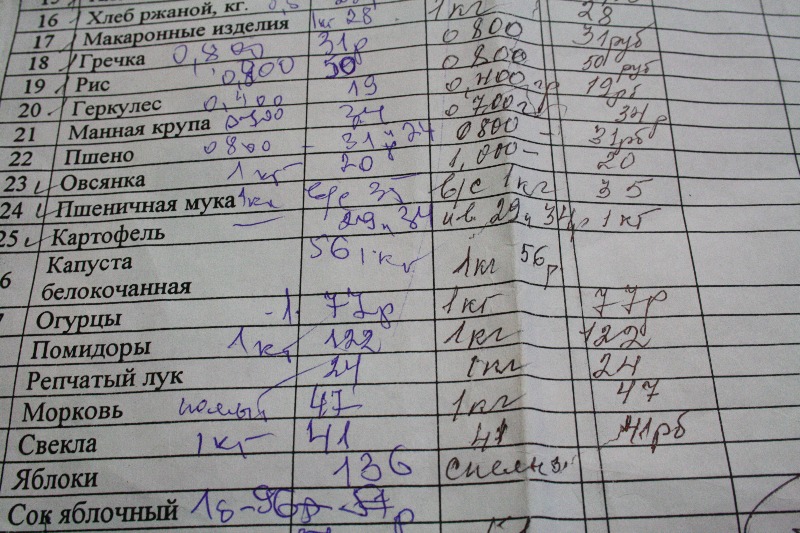 16 Хлеб ржаной, кг. 1кг 28 1кг 28
17 Макаронные изделия 31р 0 800 31руб
18 Гречка 0,800 50 0,800 50 руб
19 Рис 0,800 19 0,400 гр 19рб
20 Геркулес 0,400 34 0 700 гр 34р
21 Манная крупа 31р 0800 - 31рб
22 Пшено 0800 - 20 1,000- 20
23 Овсянка 1кг в/с 35 в/с 1кг 35
24 Пшеничная мука 1кг 29 и 34 29 и 34р 1кг
25 Картофель 56 1кг 1кг 56р
6 Капуста
белокочанная
7 Огурцы - 1 77р 1кг 77р
Помидоры 1кг 122 1кг 122
Репчатый лук 24 1кг 24
Морковь 47 1кг 47
Свекла 1кг 41 41 41рб
Яблоки 136
Сок яблочный